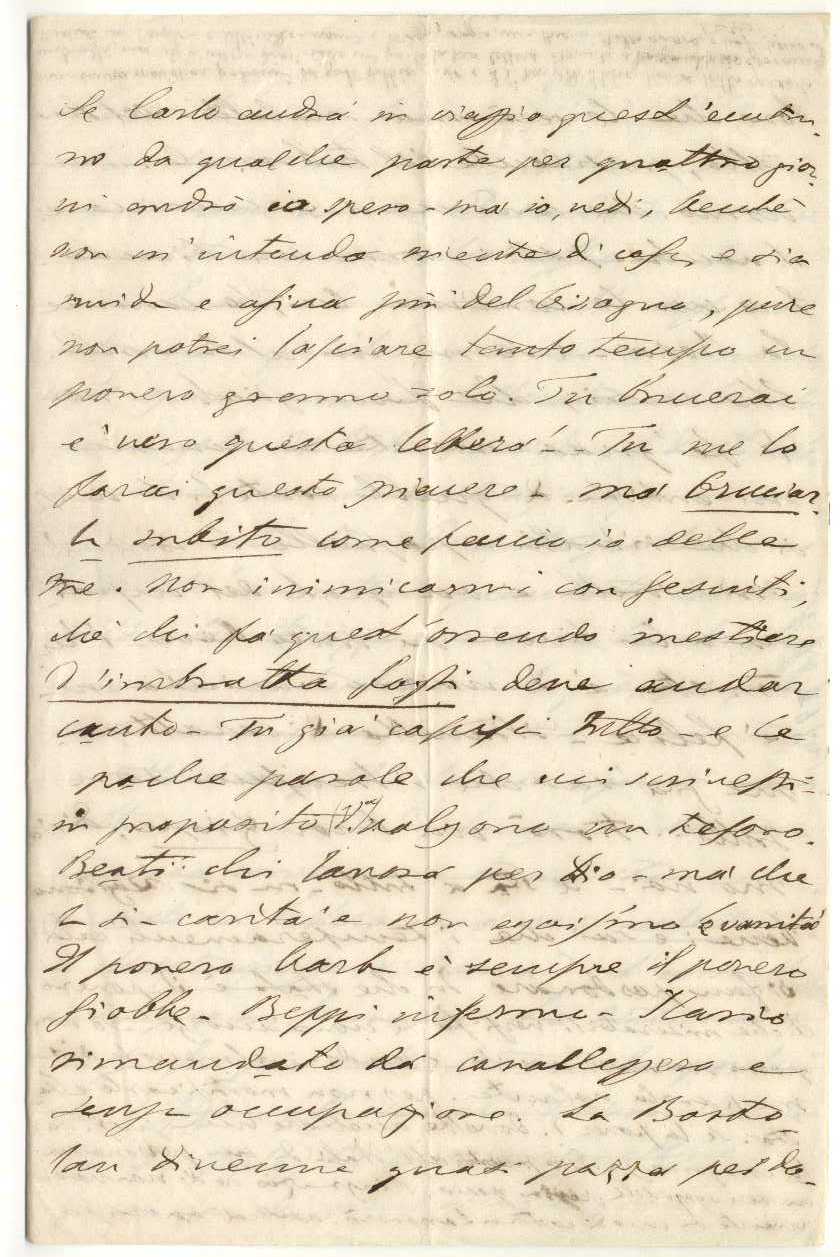 Se Carlo andrà in viaggio quest'autun-
no da qualche parte per quattro gior-
ni andrò io spero - ma io, vedi, benchè
non m'intenda niente di casa, e sia
ruvida e asina più del bisogno, pure
non potrei lasciare tanto tempo un
povero gramo solo. Tu brucerai
è vero questa lettera! - Tu me lo
farai questo piacere - ma bruciar-
la subito come faccio io delle
tue. Non inimicarmi con Gesuiti,
chè chi fa quest'orrendo mestiere
d'imbratta fogli deve andar
cauto - Tu già capisci tutto - e le
poche parole che mi scrivesti
in proposito valgono un tesoro.
Beati chi lavora per Dio - ma che
la si - carità e non egoismo e vanità
Il povero Carlo è sempre il povero
Giobbe - Beppi infermo - Ilario
rimandato da cavalleggero e
senza occupazione. La Borto-
lan divenne quasi pazza per do-